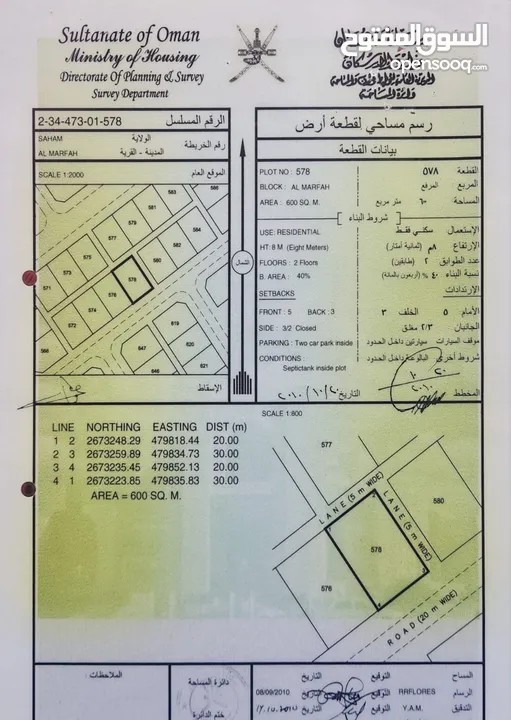 السوق المفتوح
opensooq.com
Sultanate of Oman
Ministry of Housing
Directorate Of Planning & Survey
Survey Department
2-34-473-01-578 الرقم المسلسل
SAHAM الولاية
رقم الخريطة
AL MARFAH المدينة - القرية
SCALE 1:2000 الموقع العام
583
581
586
579
584
577
582
575
580
573
578
571
576
574
619
572
617
622
620
621
566
الإسقاط
رسم مساحي لقطعة أرض
بيانات القطعة
PLOT NO : 578 ٥٧٨ القطعة
BLOCK : AL MARFAH المرفع المربع
AREA : 600 SQ. M. ٦٠٠ متر مربع المساحة
شروط البناء
USE: RESIDENTIAL سكني فقط الإستعمال
HT: 8 M (Eight Meters) ٨م (ثمانية أمتار) الإرتفاع
FLOORS : 2 Floors ٢ (طابقين) عدد الطوابق
B. AREA : 40% ٤٠ % (أربعون بالمائة) نسبة البناء
SETBACKS الإرتدادات
FRONT : 5 BACK : 3 ٣ الخلف ٥ الأمام
SIDE : 3/2 Closed ٢/٣ مغلق الجانبان
PARKING : Two car park inside موقف السيارات سيارتين داخل الحدود
CONDITIONS : شروط أخرى البالوعة داخل الحدود
Septictank inside plot
التاريخ المخطط
الشمال
SCALE 1:800
LINE NORTHING EASTING DIST (m)
1 2 2673248.29 479818.44 20.00
2 3 2673259.89 479834.73 30.00
3 4 2673235.45 479852.13 20.00
4 1 2673223.85 479835.83 30.00
AREA = 600 SQ. M.
577
LANE (5 m WIDE)
LANE (5 m WIDE)
580
578
576
ROAD (20 m WIDE)
الملاحظات :
دائرة المساحة
ختم الدائرة
التاريخ التوقيع المساح
08/09/2010 التاريخ التوقيع RRFLORES الرسام
التاريخ التوقيع Y.A.M. التدقيق